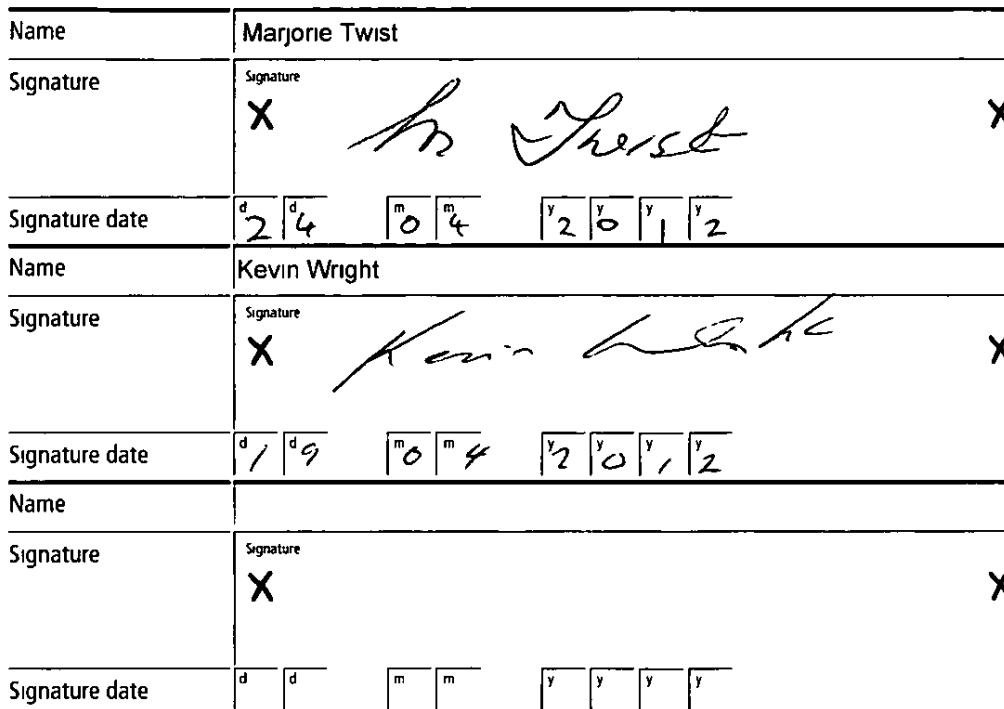 Name Marjorie Twist
Signature Signature
X M Twist X
Signature date d 2 d 4 m 0 m 4 y 2 y 0 y 1 y 2
Name Kevin Wright
Signature Signature
X Kevin Wright X
Signature date d 1 d 9 m 0 m 4 y 2 y 0 y 1 y 2
Name
Signature Signature
X X
Signature date d d m m y y y y